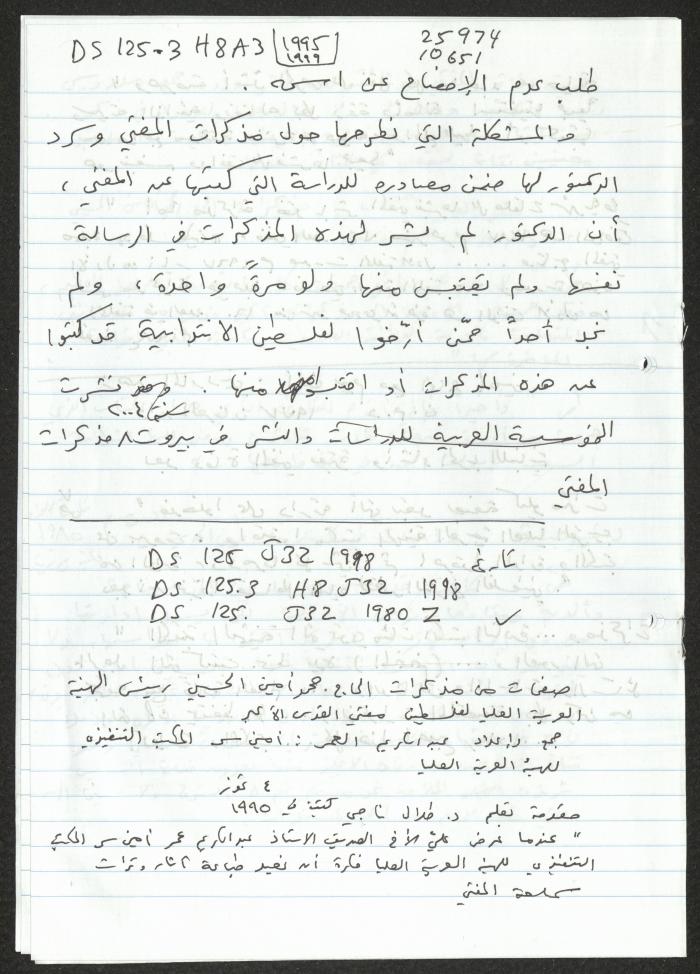 25974
DS 125.3 H8A3 1995
1999
10651
طلب عدم الإفصاح عن اسمه .
والمشكلة التي نطرحها حول مذكرات المفتي وسرد
الدكتور لها ضمن مصادره للدراسة التي كتبها عن المفتي ،
أن الدكتور لم يشر لهذه المذكرات في الرسالة
نفسها ولم يقتبس منها ولو مرةً واحدة ، ولم
نجد أحداً ممّن أرّخوا لفلسطين الانتدابية قد كتبوا
عن هذه المذكرات أو منها . نشرت
سنة ٢٠٠٤
المؤسسة العربية للدراسات والنشر في بيروت مذكرات
المفتي
DS 125 J32 1998 تاريخ
DS 125.3 H8 J32 1998
DS 125. J32 1980 Z ✓
صفحات من مذكرات الحاج محمد أمين الحسيني رئيس الهيئة
العربية العليا لفلسطين مفتي القدس الأكبر
جمع وإعداد عبد الكريم العمر : أمين سر المكتب التنفيذي
للهيئة العربية العليا
٤ تموز
مقدمة بقلم د. طلال ناجي كتبت في ١٩٩٠
" عندما عرض عليّ الأخ الصديق الاستاذ عبد الكريم عمر أمين سر المكتب
التنفيذي للهيئة العربية العليا فكرة أن نعيد طباعة آثار وتراث
سماحة المفتي